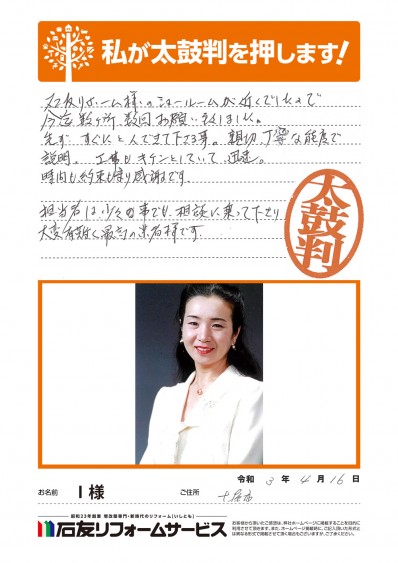 私が太鼓判を押します！
石友リホーム様のショールームが近くでしたので
今迄数ヶ所、数回お願い致しました。
先ず すぐにとんできて下さる事。親切、丁寧な態度で
説明。工事もキチンとしていて 迅速。
時間も約束も守り感謝です。
担当者は少々の事でも、相談に乗って下さり
大変有難く最高の業者様です。
太鼓判
令和 3 年 4 月 16 日
お名前 I 様 ご住所
昭和33年創業 増改築専門・新時代のリフォーム［いしとも］
石友リフォームサービス
お客様から頂いたご感想は、弊社ホームページに掲載することを目的に
利用させて頂きます。また、ホームページ掲載時に、ご記入頂いた形式と
は異なる形式で掲載させて頂く場合もございますが、ご了承ください。